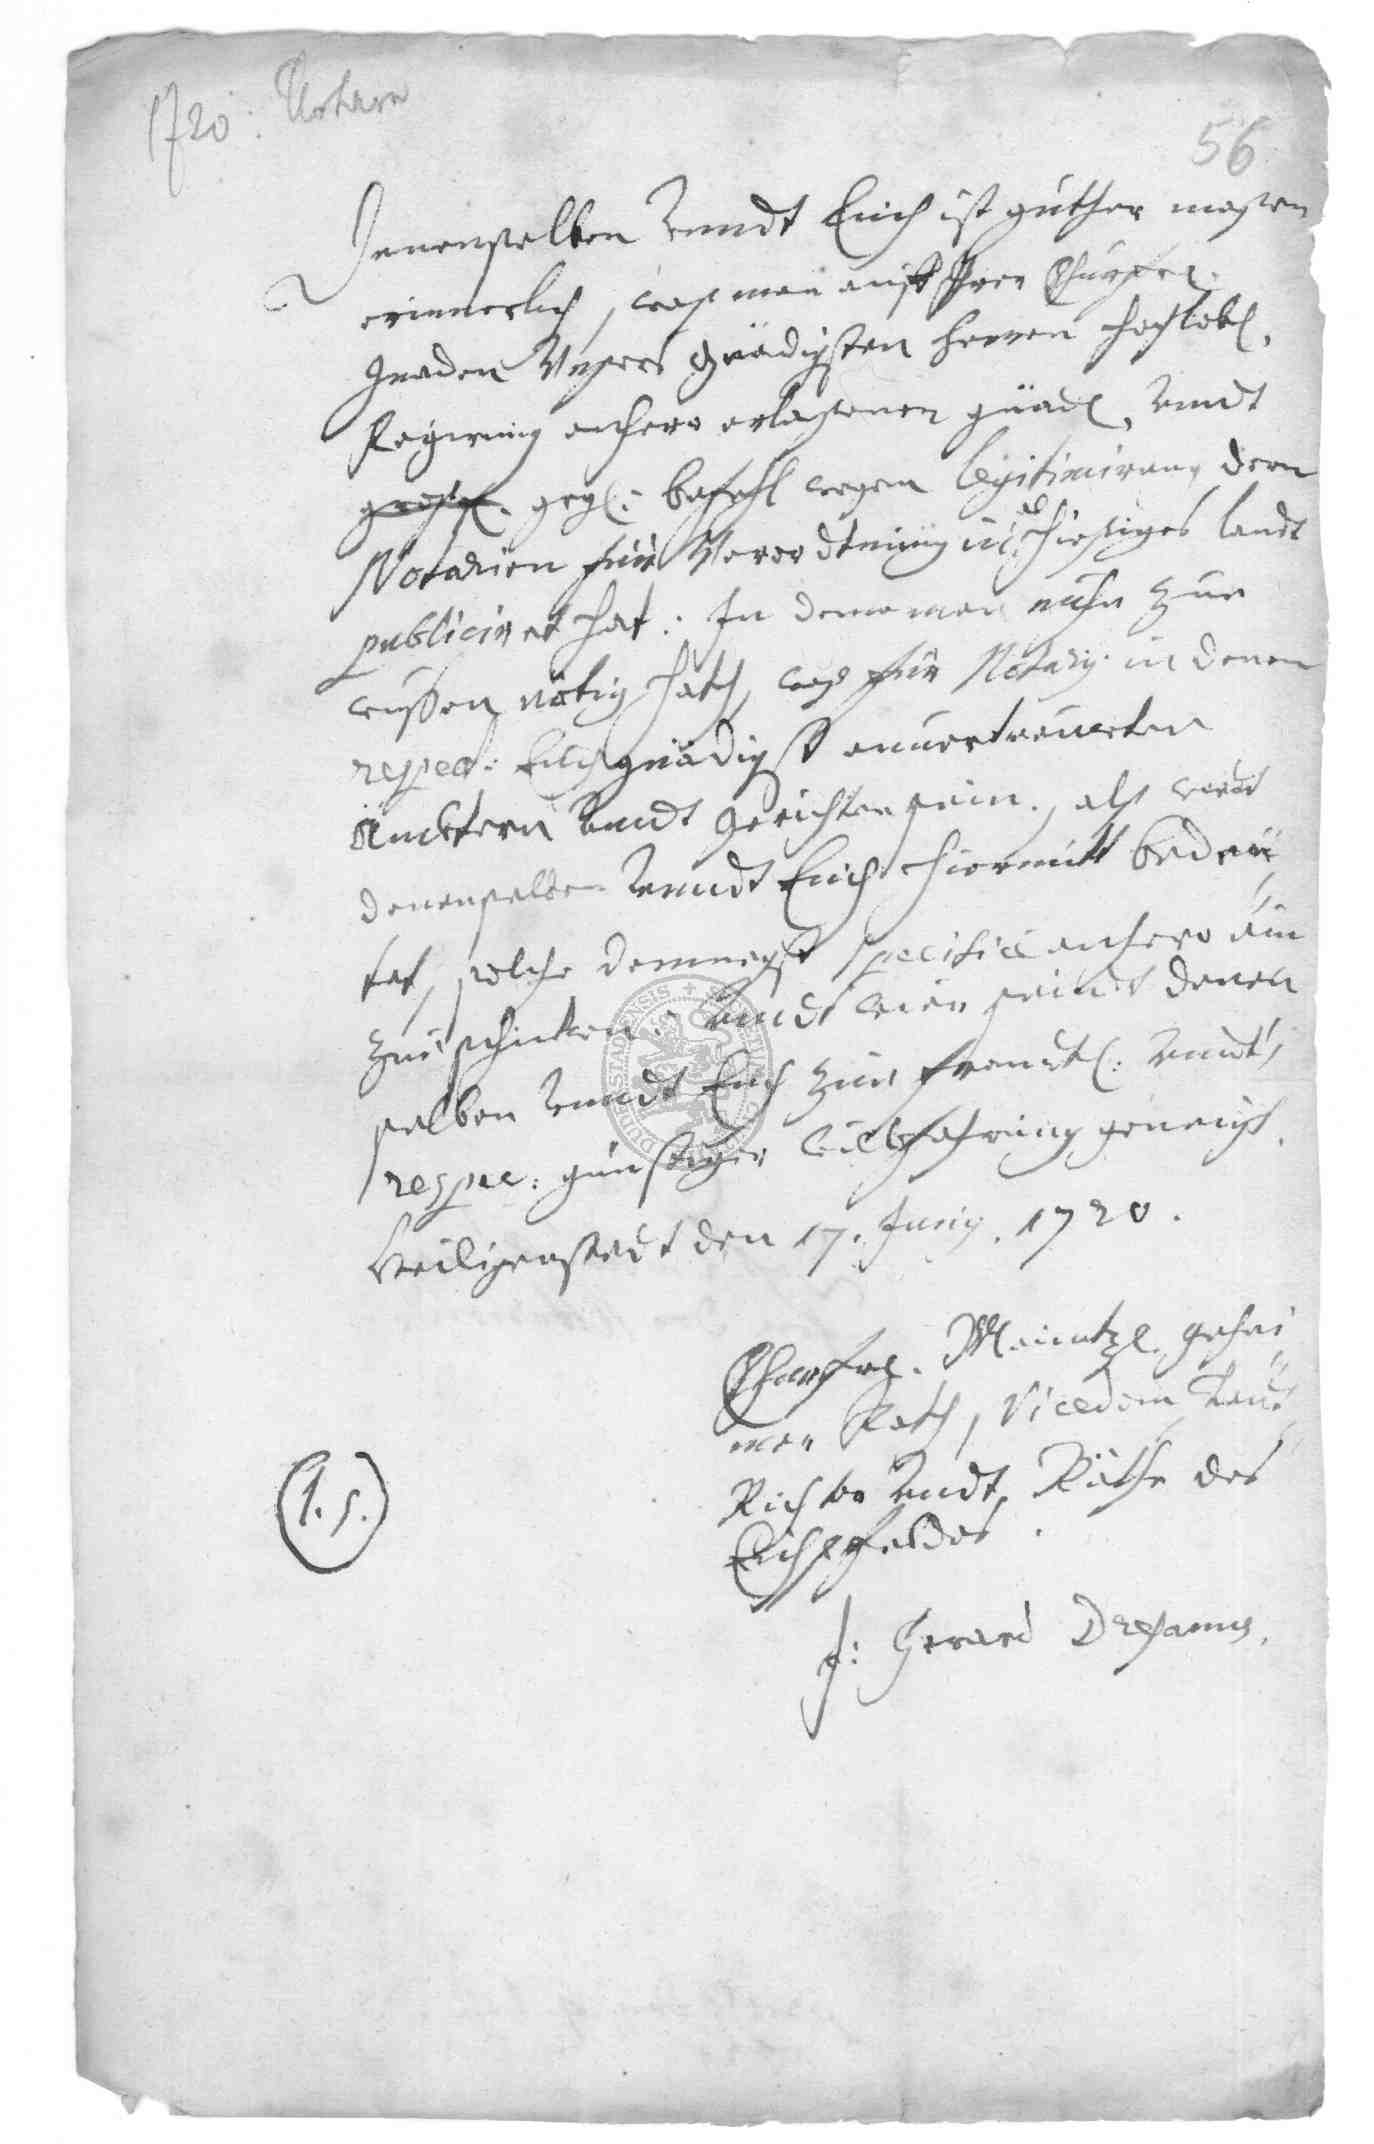 1720. Notare
56
Denenselben undt Euch ist guther maßen
erinnerlich, waß man auff Ihrer Churfrl.
Gnaden Unsers Gnädigsten Herren Hochlobl.
Regirung anhero erlaßenen gnäd. undt
gegl. befehl wegen legitimirung deren
Notarien für Verordtnung in hießiges landt
publiciret hat. In deme man nuhn zue
wißen nötig hath, waß für Notarij in denen
respect: Euch gnädigst anvertrauerten
Ämbtern undt Gerichten sein, alß wird
denenselben undt Euch hiermitt bedeu
tet, solche demnegst specifice anhero ein
zuschicken. undt wier seindt denen
selben undt Euch zue freundtl. undt
respec: günstiger willfahrung geneigt.
Heiligenstadt den 17. Junij. 1720.
Churfrl. Maintzl. gehei
mer Rath, Vicedom Landt
Richter undt Räthe des
Eichsfeldes.
(L. S.)
J: Gerard